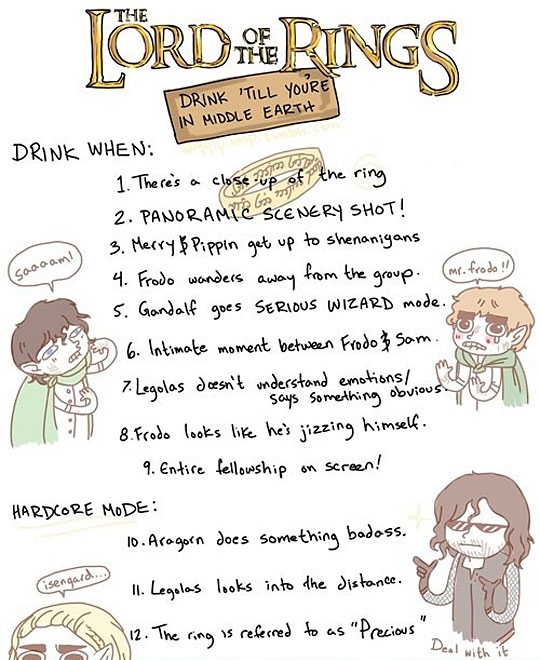 THE
LORD OF THE RINGS
DRINK 'TILL YOU'RE
IN MIDDLE EARTH
DRINK WHEN:
1. There's a close-up of the ring
2. PANORAMIC SCENERY SHOT!
3. Merry & Pippin get up to shenanigans
saaaam!
4. Frodo wanders away from the group.
mr. frodo!!
5. Gandalf goes SERIOUS WIZARD mode.
6. Intimate moment between Frodo & Sam.
7. Legolas doesn't understand emotions/
says something obvious.
8. Frodo looks like he's jizzing himself.
9. Entire fellowship on screen!
HARDCORE MODE:
10. Aragorn does something badass.
isengard...
11. Legolas looks into the distance.
12. The ring is referred to as "Precious"
Deal with it